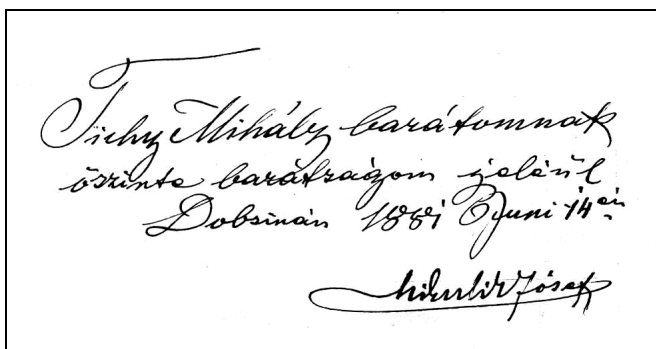 Tichy Mihály barátomnak
őszinte barátságom jeléül
Dobsinán 1881 Juni 14 én
Mikulik József